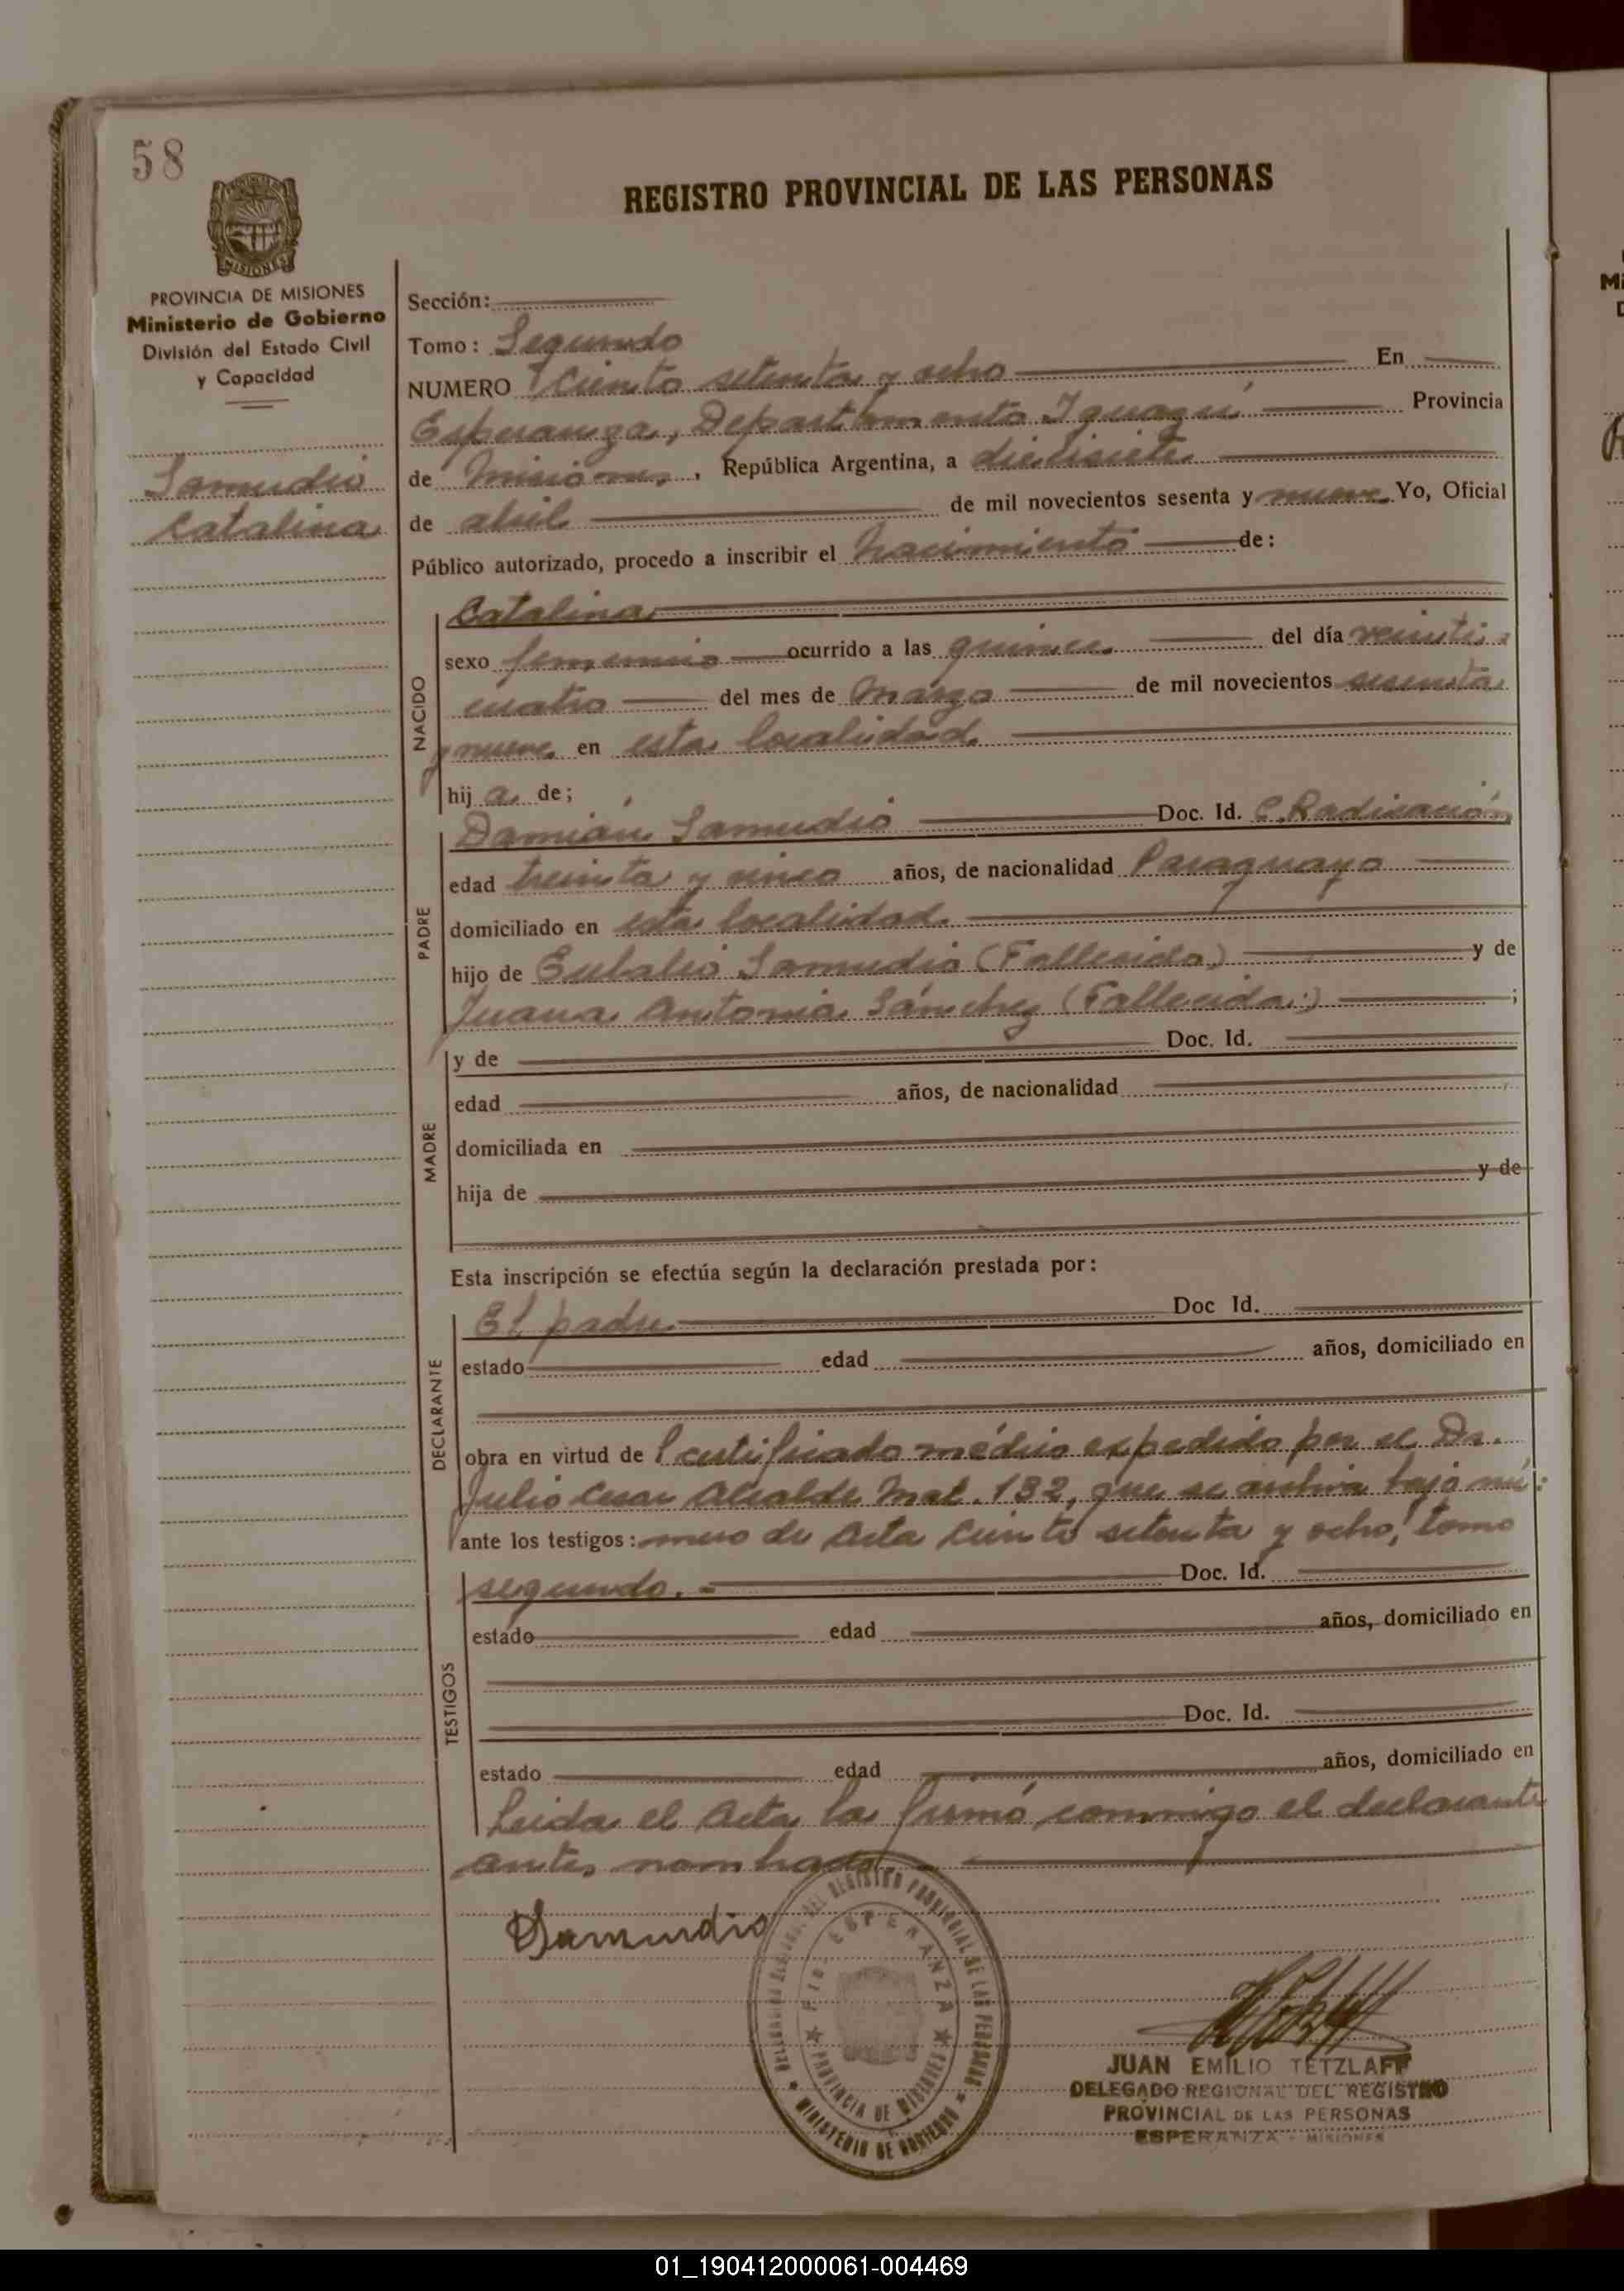 58
REGISTRO PROVINCIAL DE LAS PERSONAS
MISIONES
PROVINCIA DE MISIONES
Ministerio de Gobierno
División del Estado Civil
y Capacidad
Samudio
Catalina
Sección:
Tomo: Segundo
NUMERO Ciento setenta y ocho En
Esperanza, Departamento Iguazú Provincia
de Misiones, República Argentina, a diecisiete
de abril de mil novecientos sesenta y nueve Yo, Oficial
Público autorizado, procedo a inscribir el Nacimiento de:
NACIDO
Catalina
sexo femenino ocurrido a las quince del día veinti-
cuatro del mes de Marzo de mil novecientos sesenta
y nueve en esta localidad.
hij a de;
PADRE
Damián Samudio Doc. Id. C. Radicación
edad treinta y cinco años, de nacionalidad Paraguayo
domiciliado en esta localidad.
hijo de Eulalio Samudio (Fallecido) y de
Juana Antonia Sánchez (Fallecida) ;
MADRE
y de Doc. Id.
edad años, de nacionalidad
domiciliada en
hija de y de
Esta inscripción se efectúa según la declaración prestada por:
DECLARANTE
El padre Doc Id.
estado edad años, domiciliado en
obra en virtud de certificado médico expedido por el Dr.
Julio Cesar Alcalde Mat. 132, que se archiva bajo nú:
ante los testigos: mero de Acta ciento setenta y ocho, tomo
TESTIGOS
segundo.- Doc. Id.
estado edad años, domiciliado en
Doc. Id.
estado edad años, domiciliado en
Leida el Acta la firmó conmigo el declarante
antes nombrado.-
Samudio
REGISTRO PROVINCIAL DE LAS PERSONAS
ESPERANZA
PROVINCIA DE MISIONES
MINISTERIO DE GOBIERNO
JUAN EMILIO TETZLAFF
DELEGADO REGIONAL DEL REGISTRO
PROVINCIAL DE LAS PERSONAS
ESPERANZA - MISIONES
01_190412000061-004469